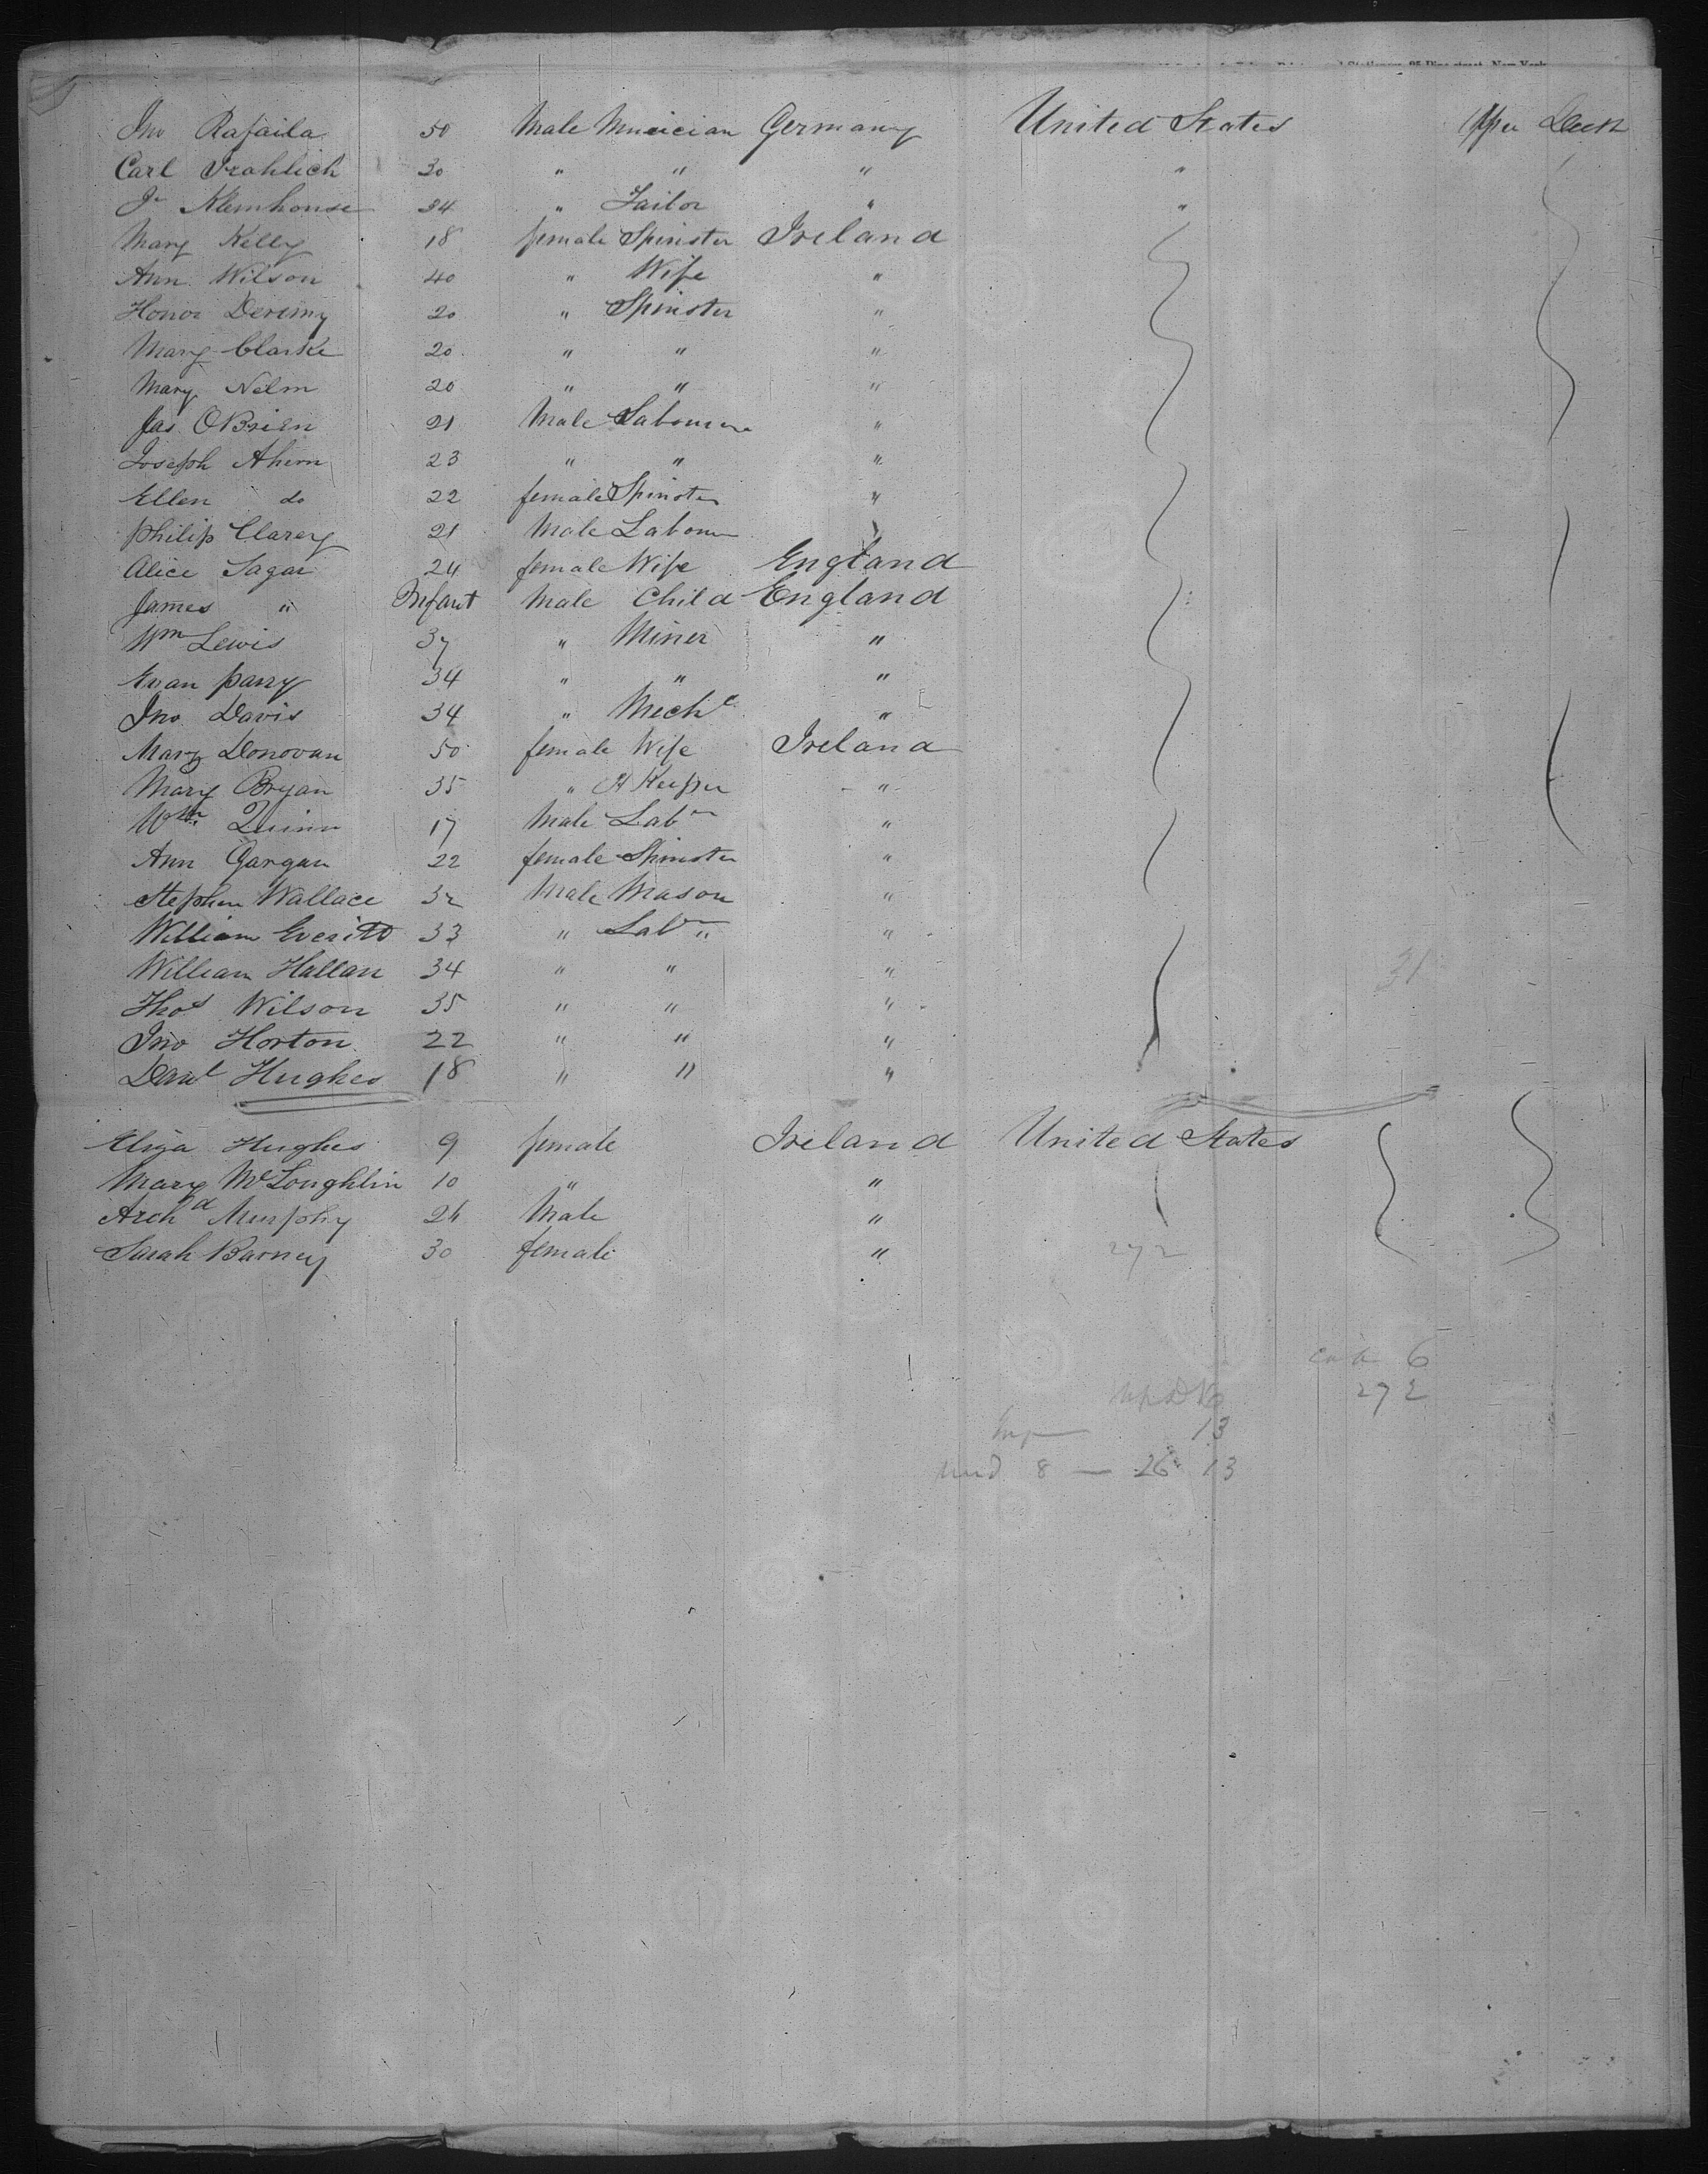 95 Pine street, New York
Jno Rafaila 50 Male Musician Germany United States Upper Deck
Carl Frohlich 30 " " " "
Jn Klemhouse 34 " Tailor " "
Mary Kelly 18 female Spinster Ireland
Ann Wilson 40 " Wife "
Honor 20 " Spinster "
Mary Clarke 20 " " "
Mary Nelm 20 " " "
Jas OBrien 21 Male Labourer "
Joseph Ahern 23 " " "
Ellen do 22 female Spinster "
Philip Clarey 21 Male Labour "
Alice Sagar 24 female Wife England
James " Infant Male Child England
Wm Lewis 37 " Miner "
Evan Parry 34 " " "
Jno Davis 34 " Mechc "
Mary Donovan 50 female Wife Ireland
Mary Bryan 35 " H Keeper "
Wm Quinn 17 Male Labr "
Ann Gargan 22 female Spinster "
Stephen Wallace 32 Male Mason "
William Everitt 33 " Labr " "
William Hallan 34 " " " 31
Thos Wilson 35 " " "
Jno Horton 22 " " "
Danl Hughes 18 " " "
Eliza Hughes 9 female Ireland United States
Mary McLoughlin 10 " "
Archd Murphy 24 Male "
Sarah Barney 30 female " 272
cab 6
Up Dk 272
13
und 8 — 26 13